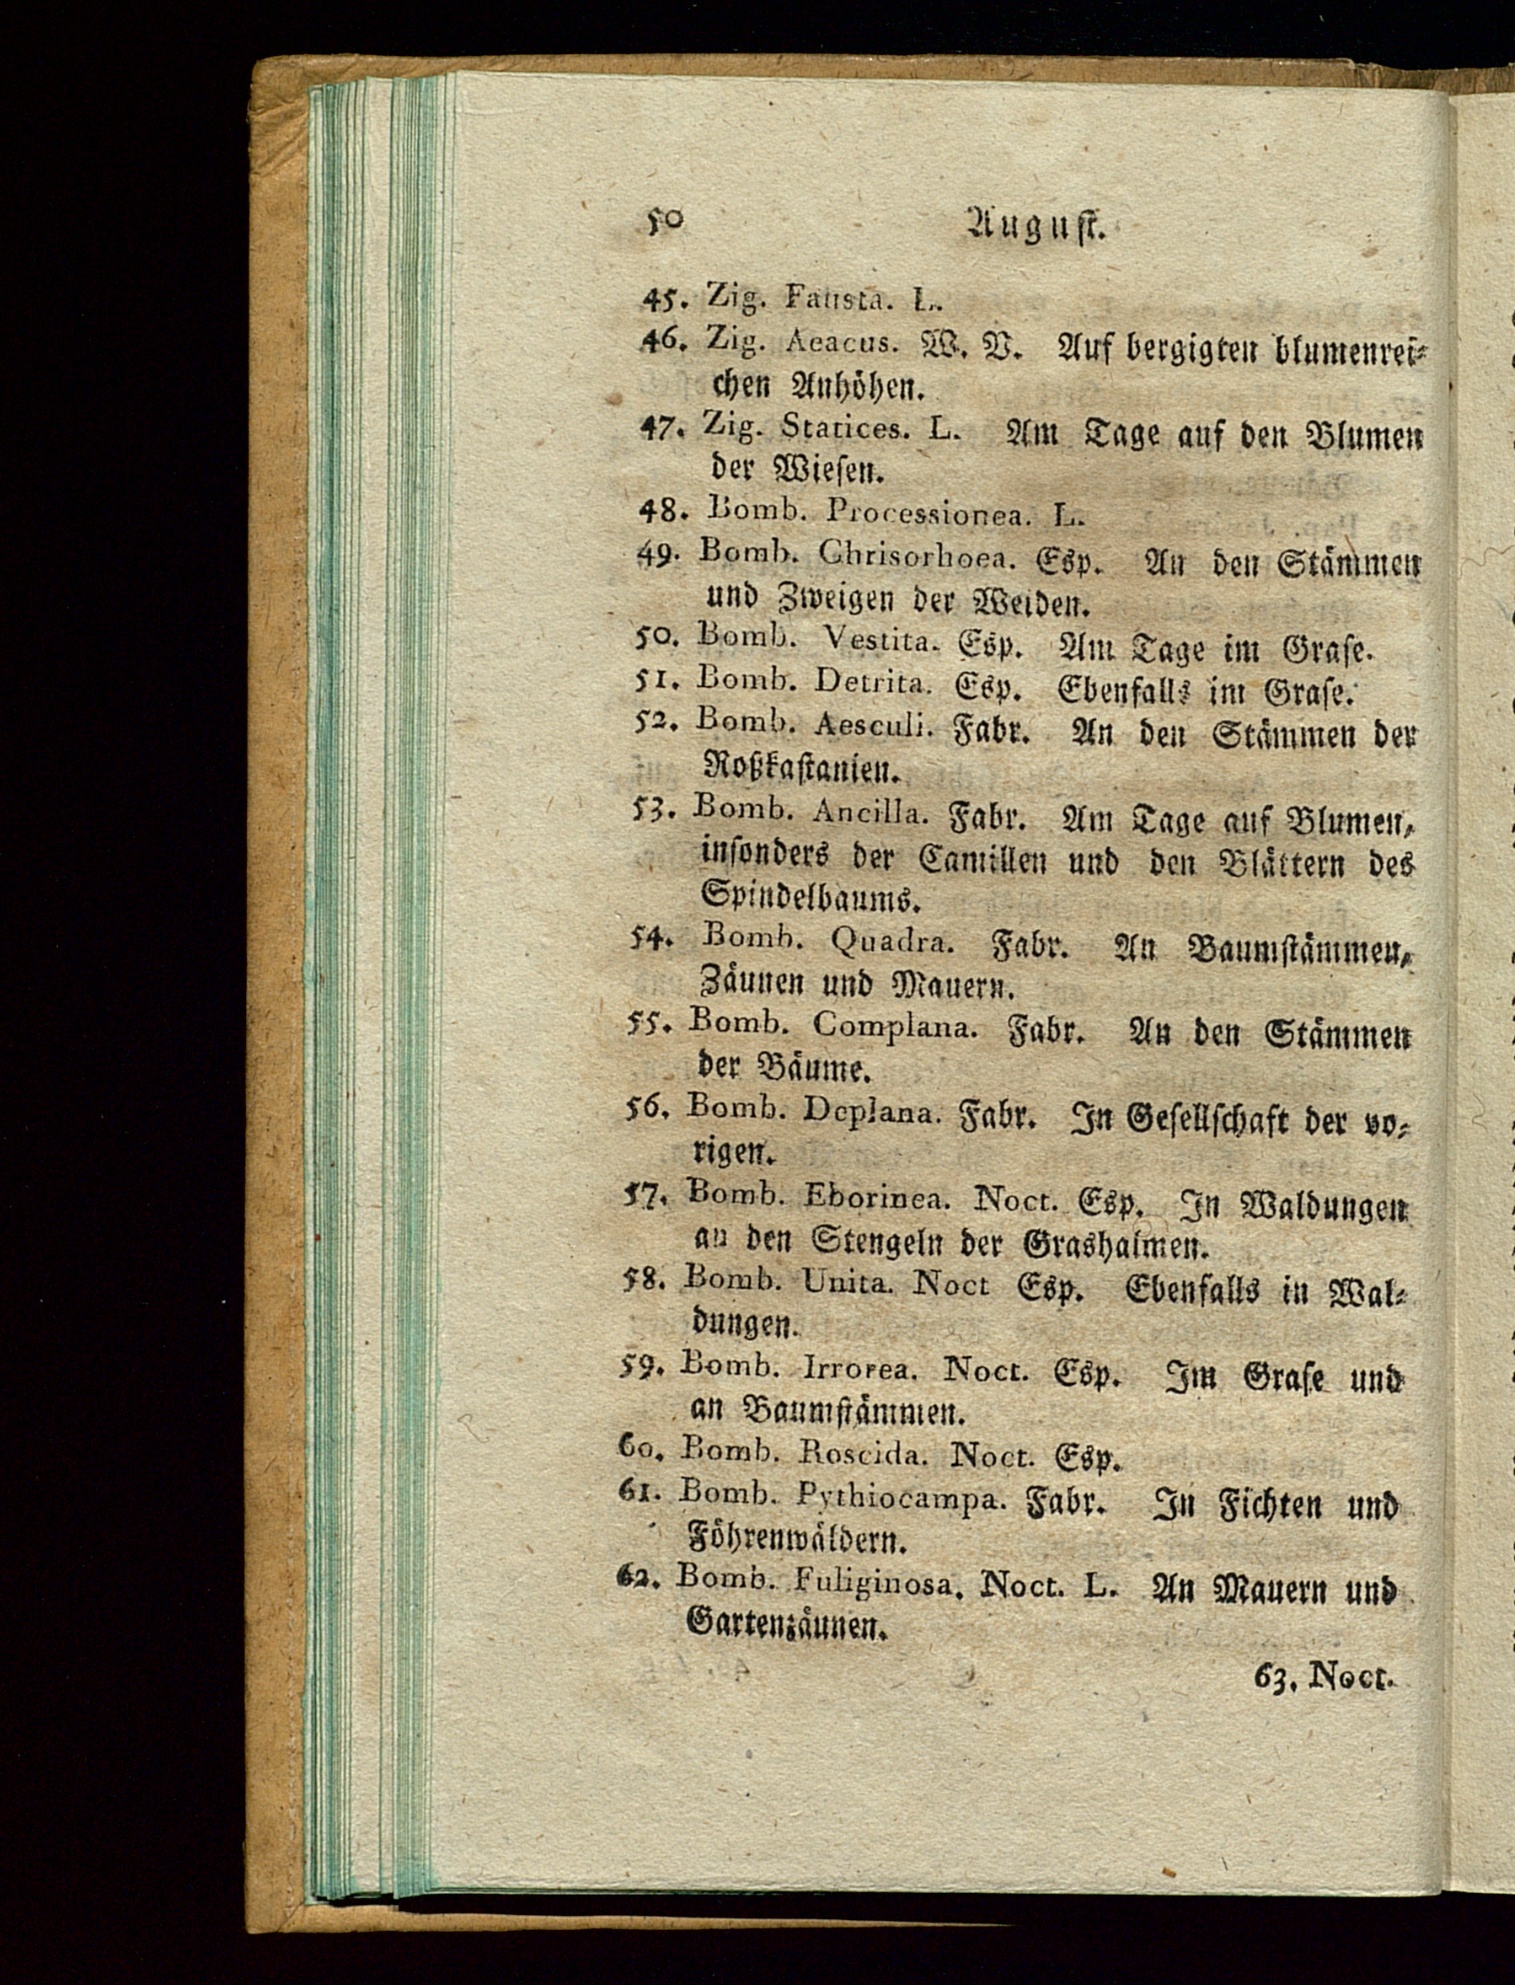 50 August.
45. Zig. Fausta. L.
46. Zig. Aeacus. W. V. Auf bergigten blumenrei⸗
chen Anhöhen.
47. Zig. Statices. L. Am Tage auf den Blumen
der Wieſen.
48. Bomb. Processionea. L.
49. Bomb. Chrisorhoea. Esp. An den Stämmen
und Zweigen der Weiden.
50. Bomb. Vestita. Esp. Am Tage im Graſe.
51. Bomb. Detrita. Esp. Ebenfalls im Graſe.
52. Bomb. Aesculi. Fabr. An den Stämmen der
Roßkaſtanien.
53. Bomb. Ancilla. Fabr. Am Tage auf Blumen,
inſonders der Camillen und den Blättern des
Spindelbaums.
54. Bomb. Quadra. Fabr. An Baumſtämmen,
Zäunen und Mauern.
55. Bomb. Complana. Fabr. An den Stämmen
der Bäume.
56. Bomb. Deplana. Fabr. In Geſellſchaft der vo⸗
rigen.
57. Bomb. Eborinea. Noct. Esp. In Waldungen
an den Stengeln der Grashalmen.
58. Bomb. Unita. Noct Esp. Ebenfalls in Wal⸗
dungen.
59. Bomb. Irrorea. Noct. Esp. Im Graſe und
an Baumſtämmen.
60. Bomb. Roscida. Noct. Esp.
61. Bomb. Pythiocampa. Fabr. In Fichten und
Föhrenwäldern.
62. Bomb. Fuliginosa. Noct. L. An Mauern und
Gartenzäunen.
63. Noct.